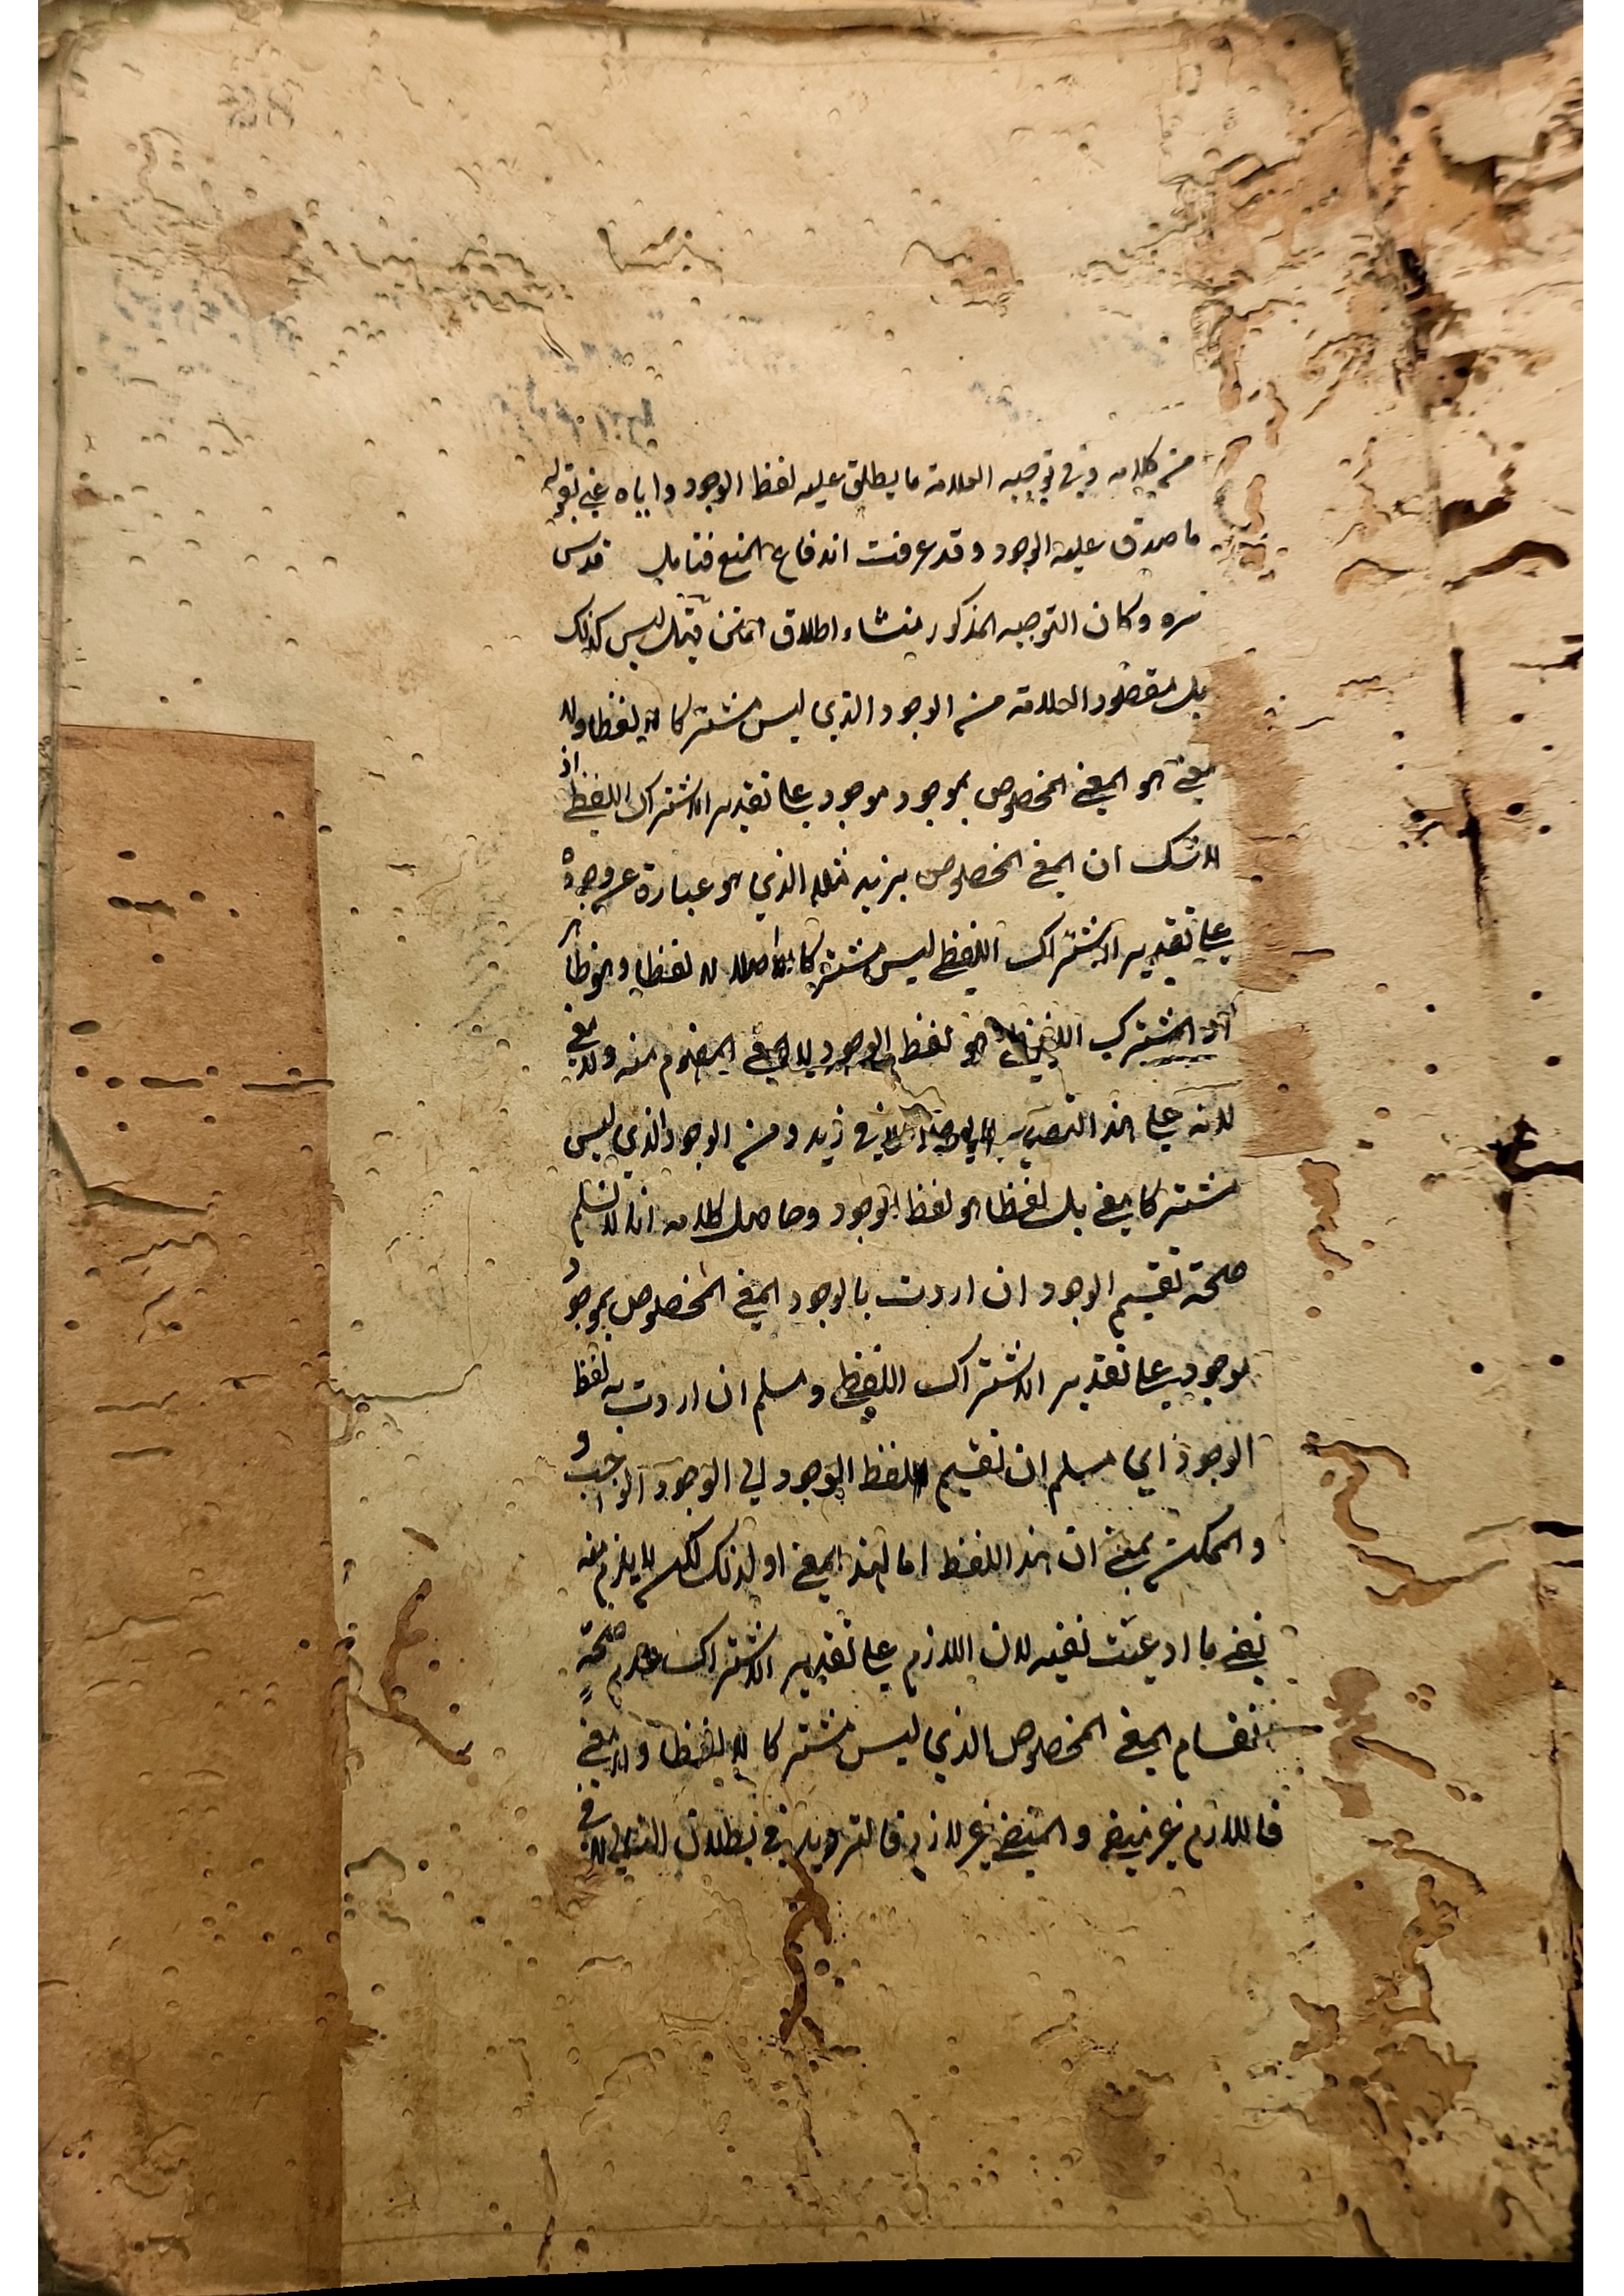 من كلامه وفي توجيه العلامة ما يطلق عليه لفظ الوجود واياه عني بقوله
ما صدق عليه الوجود وقد عرفت اندفاع المنع فتامل قدس
سره وكان التوجيه المذكور منشاء اطلاق ليس كذلك
بل مقصود العلامة من الوجود الذي ليس مشتركا لا لفظا ولا
معنى هو المعنى المخصوص بموجود موجود على تقدير الاشتراك اللفظي اذ
لا شك ان المعنى المخصوص بزيد مثلا الذي هو عبارة عن وجوده
على تقدير الاشتراك اللفظي ليس مشتركا اصلا لا لفظا وهو ظاهر
اذ المشترك اللفظي هو لفظ الوجود لا المعنى المفهوم منه ولا معنى
لانه على هذا التقدير لا يوجد الا في زيد ومن الوجود الذي ليس
مشتركا معنى بل لفظا هو لفظ الوجود وحاصل كلامه انا لا نسلم
صحة تقسيم الوجود ان اردت بالوجود المعنى المخصوص بموجود
موجود على تقدير الاشتراك اللفظي ومسلم ان اردت به لفظ
الوجود اي مسلم ان تقسيم لفظ الوجود الى الوجود الواجب و
والممكن بمعنى ان هذا اللفظ اما لهذا المعنى او لذلك لكن لا يلزم منه
نفي ما ادعيت نفيه لان اللازم على تقدير الاشتراك عدم صحة
انقسام المعنى المخصوص الذي ليس مشتركا لا لفظا ولا معنى
فاللازم غير منفي والمنفي غير لازم فالترديد في بطلان التالي لا في